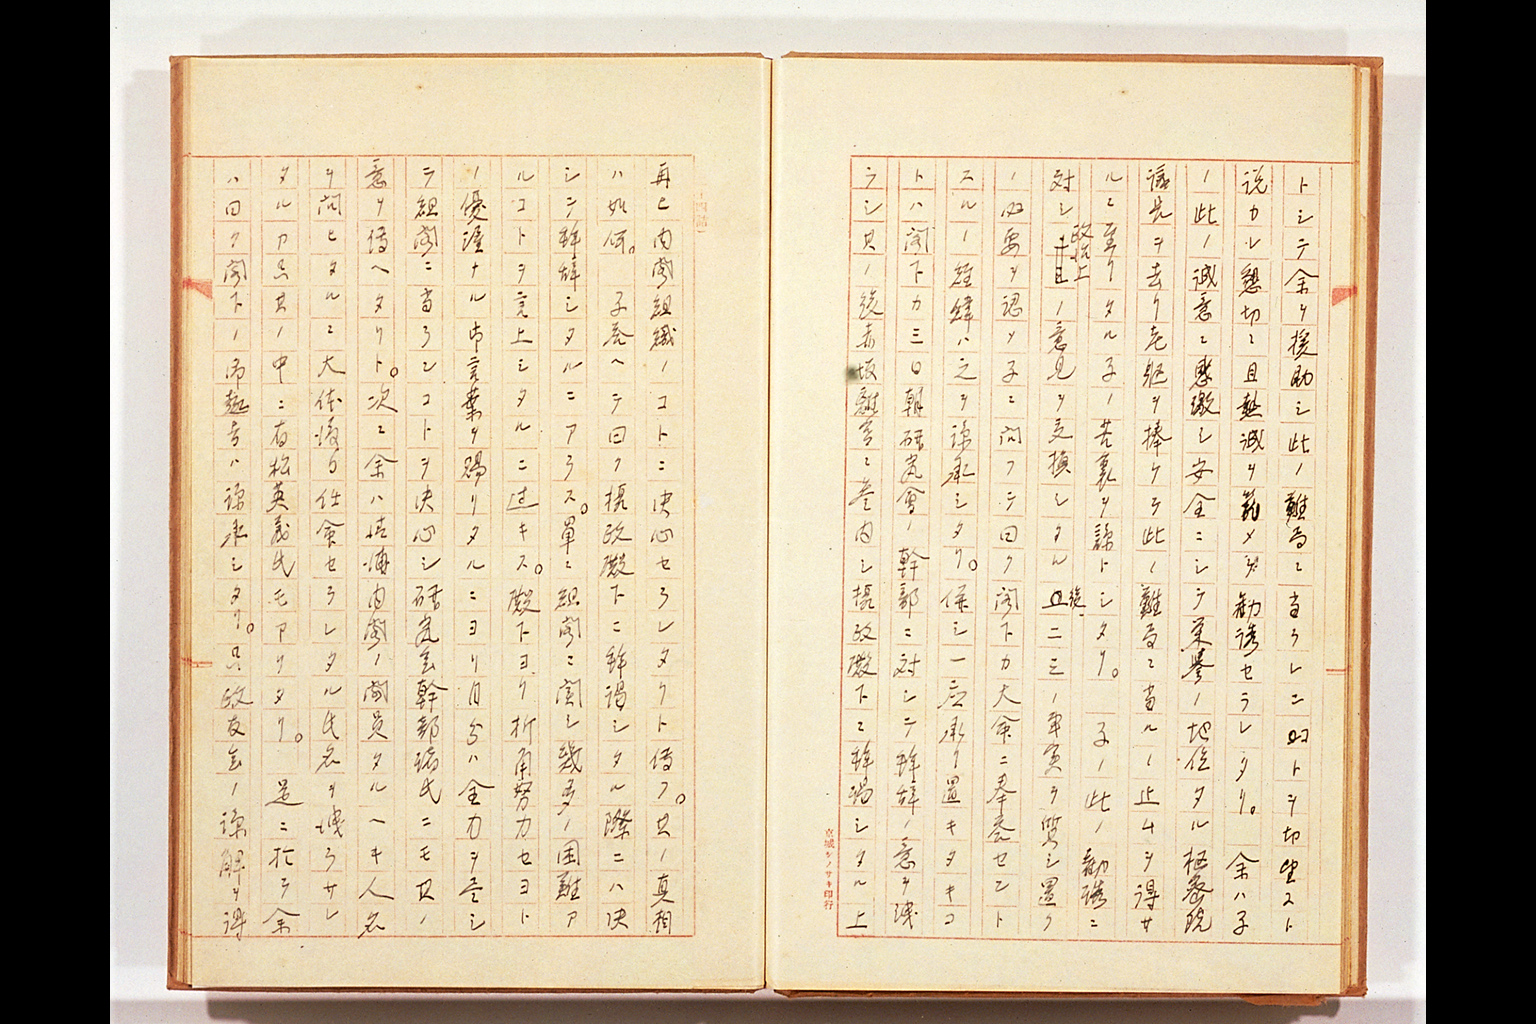 トシテ余ヲ援助シ此ノ難局ニ当ラレンコトヲ切望スト
説カル懇切ニ且熱誠ヲ籠メテ勧誘セラレタリ。余ハ子
ノ此ノ誠意ニ感激シ安全ニシテ栄誉ノ地位タル枢密院
議長ヲ去リ老躯ヲ捧ケテ此ノ難局ニ当ルノ止ムヲ得サ
ルニ至リタル子ノ苦衷ヲ諒トシタリ。子ノ此ノ勧誘ニ
対シ政治上ノ意見ヲ交換シタル後二三ノ事実ヲ質シ置ク
ノ必要ヲ認メ子ニ問フテ曰ク閣下カ大命ニ奉答セント
スルノ経緯ハ之ヲ諒承シタリ。併シ一応承リ置キタキコ
トハ閣下カ三日朝研究会ノ幹部ニ対シテ辞ノ意ヲ洩
ラシ其ノ後赤坂離宮ニ参内シ摂政殿下ニ拝謁シタル上
京城タノサキ印行
再ヒ内閣組織ノコトニ決心セラレタリト伝フ。其ノ真相
ハ如何。子答ヘテ曰ク摂政殿下ニ拝謁シタル際ニハ決
シテ拝辞シタルニアラス。単ニ組閣ニ関シ幾多ノ困難ア
ルコトヲ言上シタルニ過キス。殿下ヨリ折角努力セヨト
ノ優渥ナル御言葉ヲ賜リタルニヨリ自分ハ全力ヲ尽シ
テ組閣ニ当ランコトヲ決心シ研究会幹部諸氏ニモ其ノ
意ヲ伝ヘタリト。次ニ余ハ清浦内閣ノ閣員タルヘキ人名
ヲ問ヒタルニ大体後日任命セラレタル氏名ヲ洩ラサレ
タルカ只其ノ中ニ有松英義氏モアリタリ。是ニ於テ余
ハ曰ク閣下ノ御趣旨ハ諒承シタリ。只政友会ノ諒解ヲ得